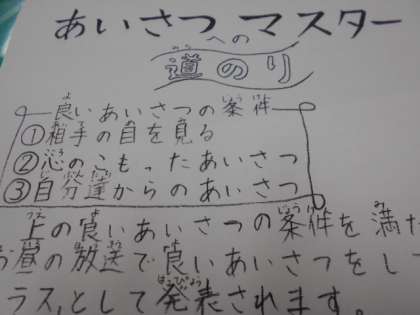 あいさつマスター
への
道のり
良いあいさつの条件
①相手の目を見る
②心のこもったあいさつ
③自分達からのあいさつ
上の良いあいさつの条件を満た
お昼の放送で良いあいさつをして
ラス,として発表されます。